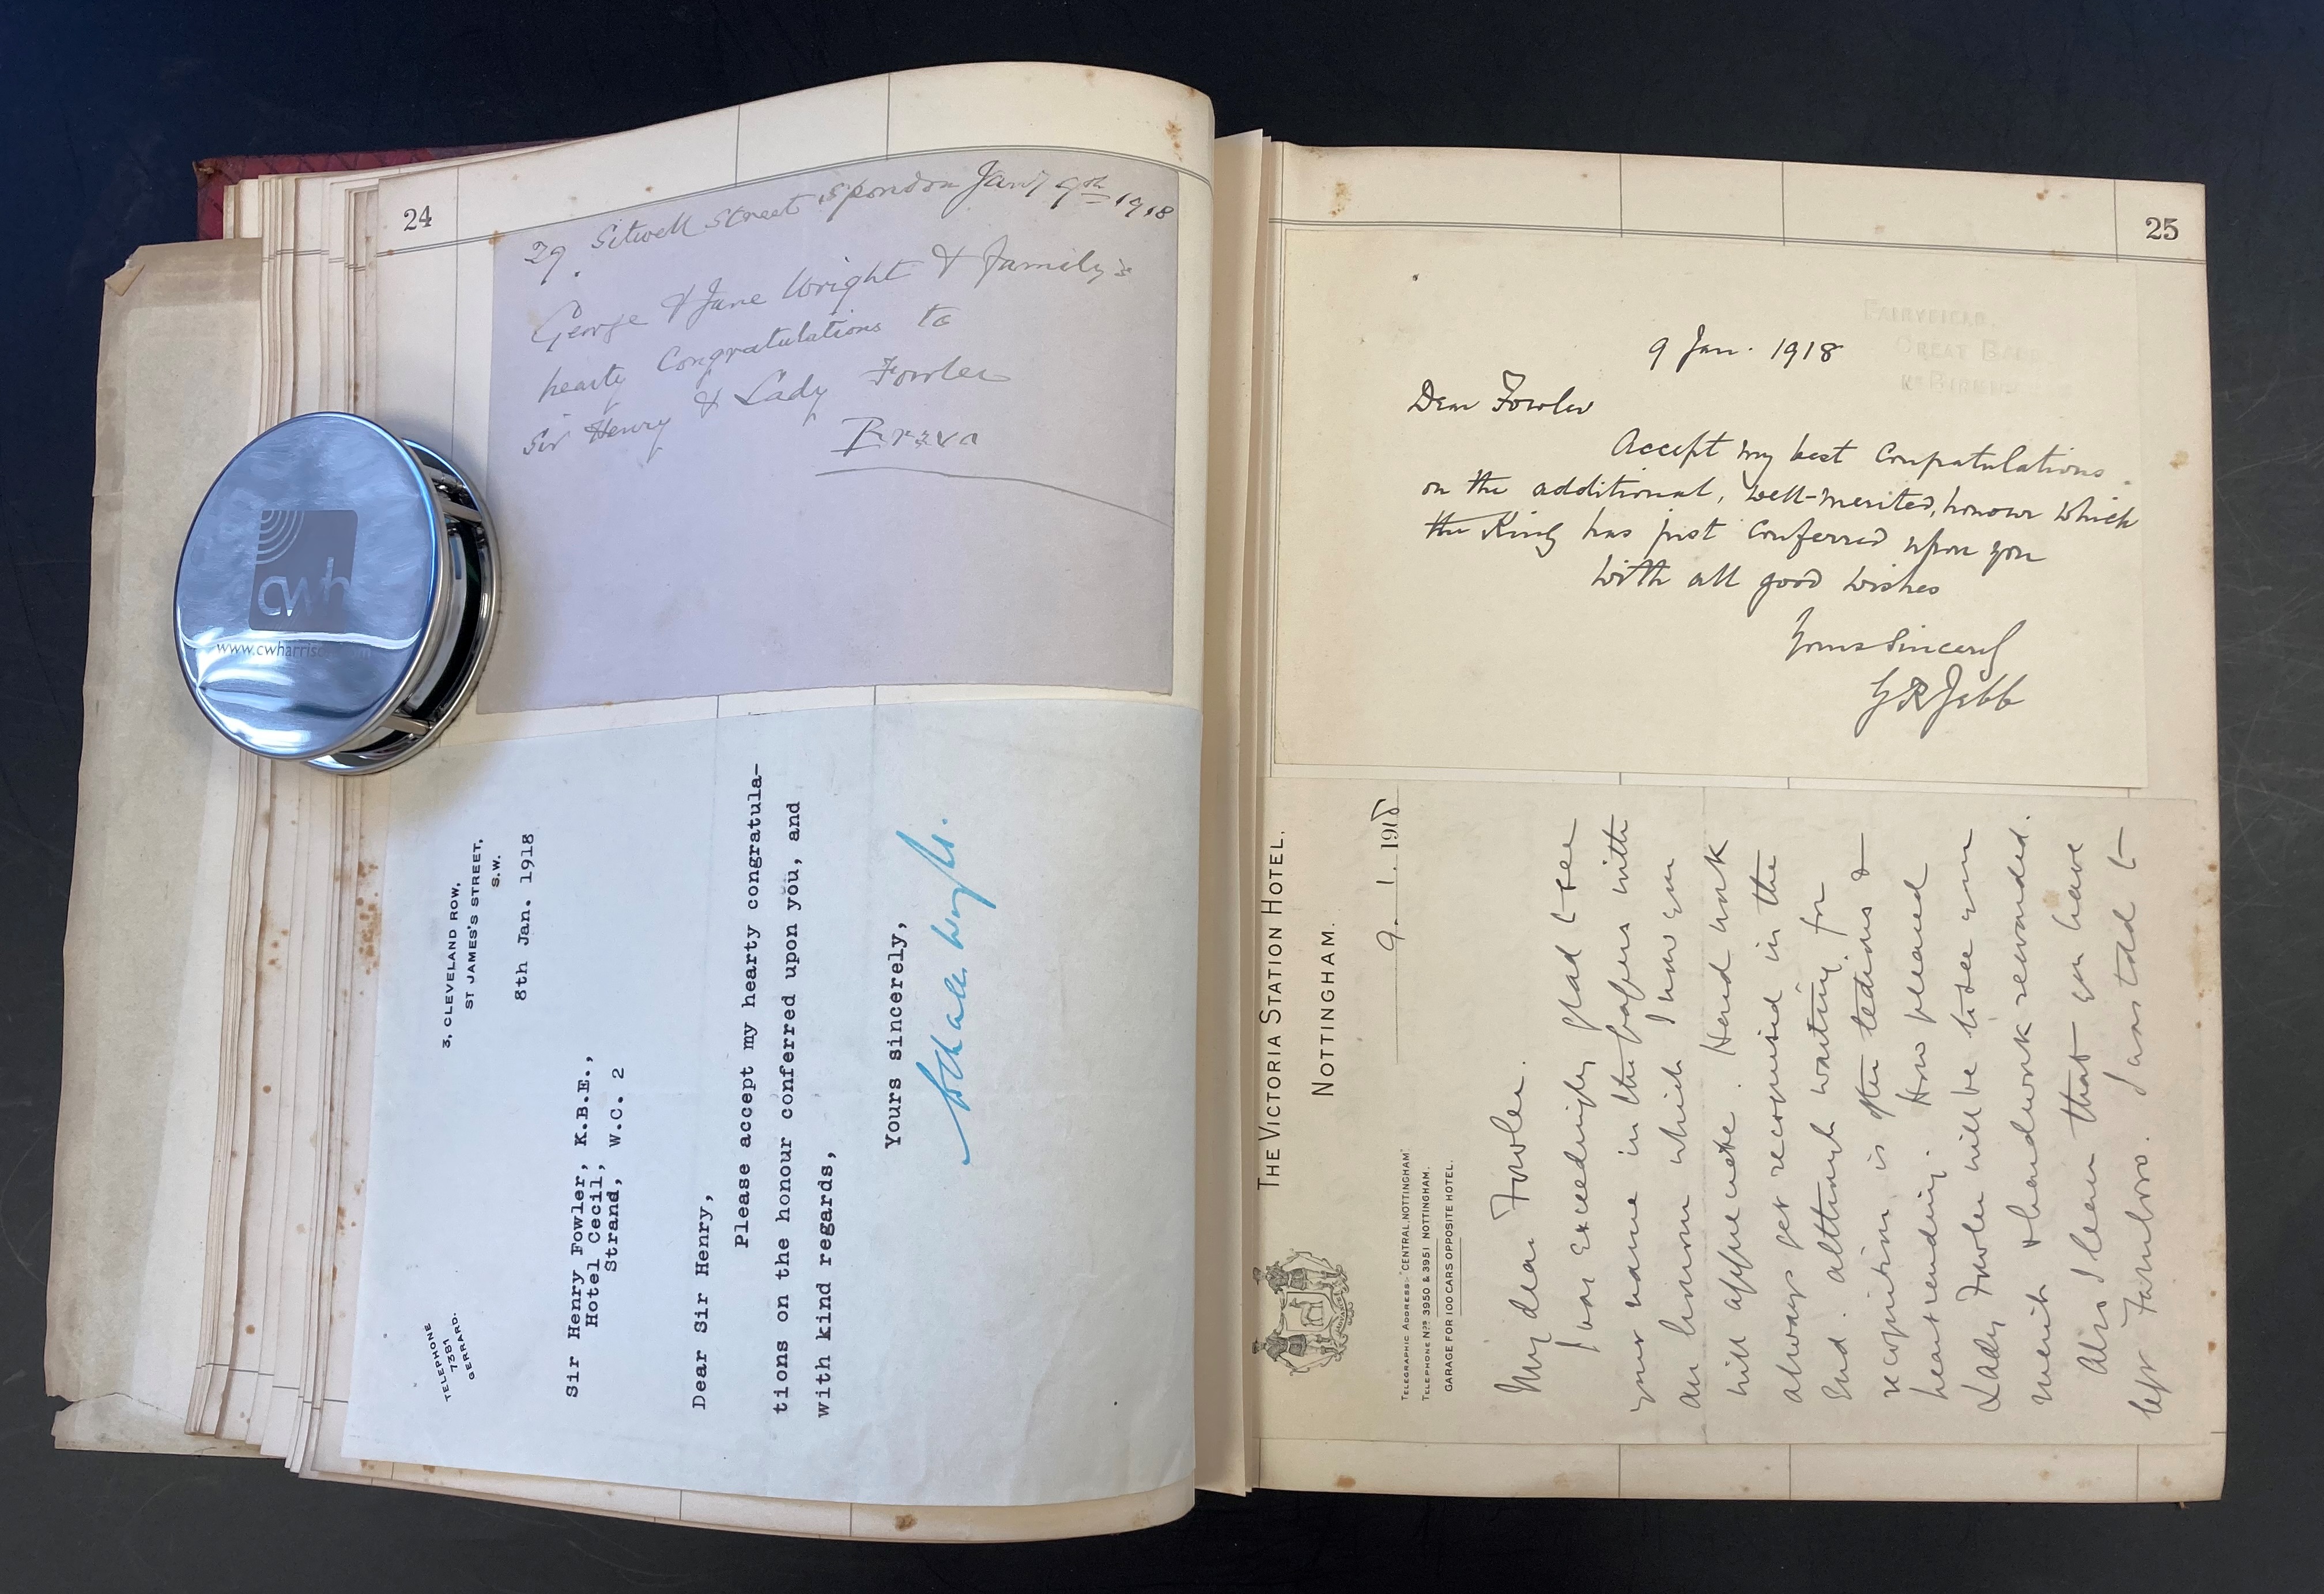 24
29. Sitwell Street Spondon Jany 9th 1918
George & Jane Wright & family's
hearty Congratulations to
Sir Henry & Lady Fowler
Bravo
cwh
www.cwharris
TELEPHONE
7391
GERRARD.
3, CLEVELAND ROW,
ST JAMES'S STREET,
S.W.
8th Jan. 1918
Sir Henry Fowler, K.B.E.,
Hotel Cecil,
Strand, W.C. 2
Dear Sir Henry,
Please accept my hearty congratula-
tions on the honour conferred upon you, and
with kind regards,
Yours sincerely,
25
FAIRYFIELD,
GREAT BARR
9 Jan. 1918
Dear Fowler
Accept my best Congratulations
on the additional, well-merited, honour which
the King has just conferred upon you
With all good wishes
Yours Sincerely
G R Jebb
THE VICTORIA STATION HOTEL.
NOTTINGHAM.
TELEGRAPHIC ADDRESS:- "CENTRAL, NOTTINGHAM"
TELEPHONE Nos 3950 & 3951 NOTTINGHAM.
GARAGE FOR 100 CARS OPPOSITE HOTEL.
9. 1. 1918
My dear Fowler.
I was exceedingly glad to see
your name in the papers with
an honour which I know you
will appreciate. Hard work
always get recognised in the
End. although waiting for
recognition is often tedious &
heartrending. How pleased
Lady Fowler will be to see your
merit & hardwork rewarded.
Also I learn that you have
left Farnboro. I wanted to